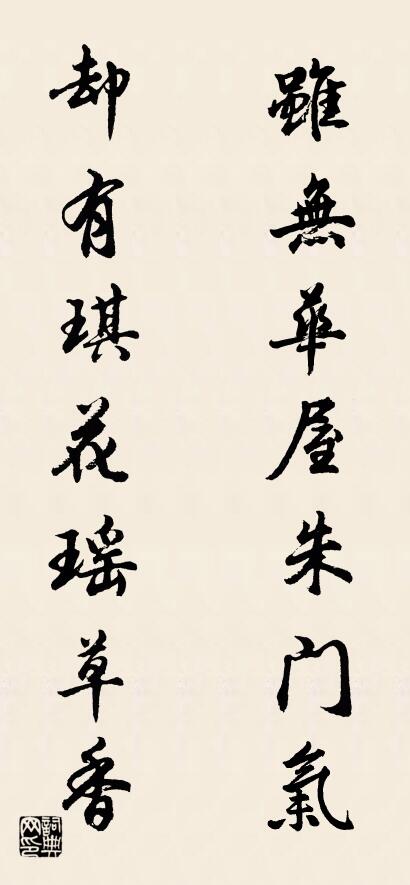 雖無華屋朱門氣
却有琪花瑶草香
詞典网印